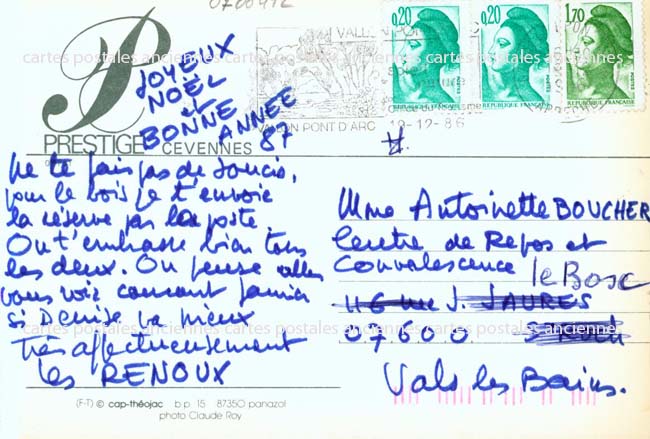 0700412
JOYEUX
NOËL
et
BONNE
ANNEE
87
P
PRESTIGE
CEVENNES
VALLON PONT D'ARC
19-12-86
0,20
0,20
1,70
POSTES
POSTES
POSTES
REPUBLIQUE FRANÇAISE
REPUBLIQUE FRANÇAISE
REPUBLIQUE FRANÇAISE
cartes postales anciennes cartes postales anciennes cartes postales anciennes
Ne te fais pas de soucis,
pour le bois je t'envoie
la réserve par la poste.
On t'embrasse bien tous
les deux. On pense aller
vous voir courant janvier
si Denise va mieux
Très affectueusement
les RENOUX
Mme Antoinette BOUCHER
Centre de Repos et
Convalescence le Bosc
116 rue J. JAURES
07600
Vals les Bains.
cartes postales anciennes cartes postales anciennes cartes postales anciennes
(F-T) © cap-théojac b.p. 15 87350 panazol
photo Claude Roy